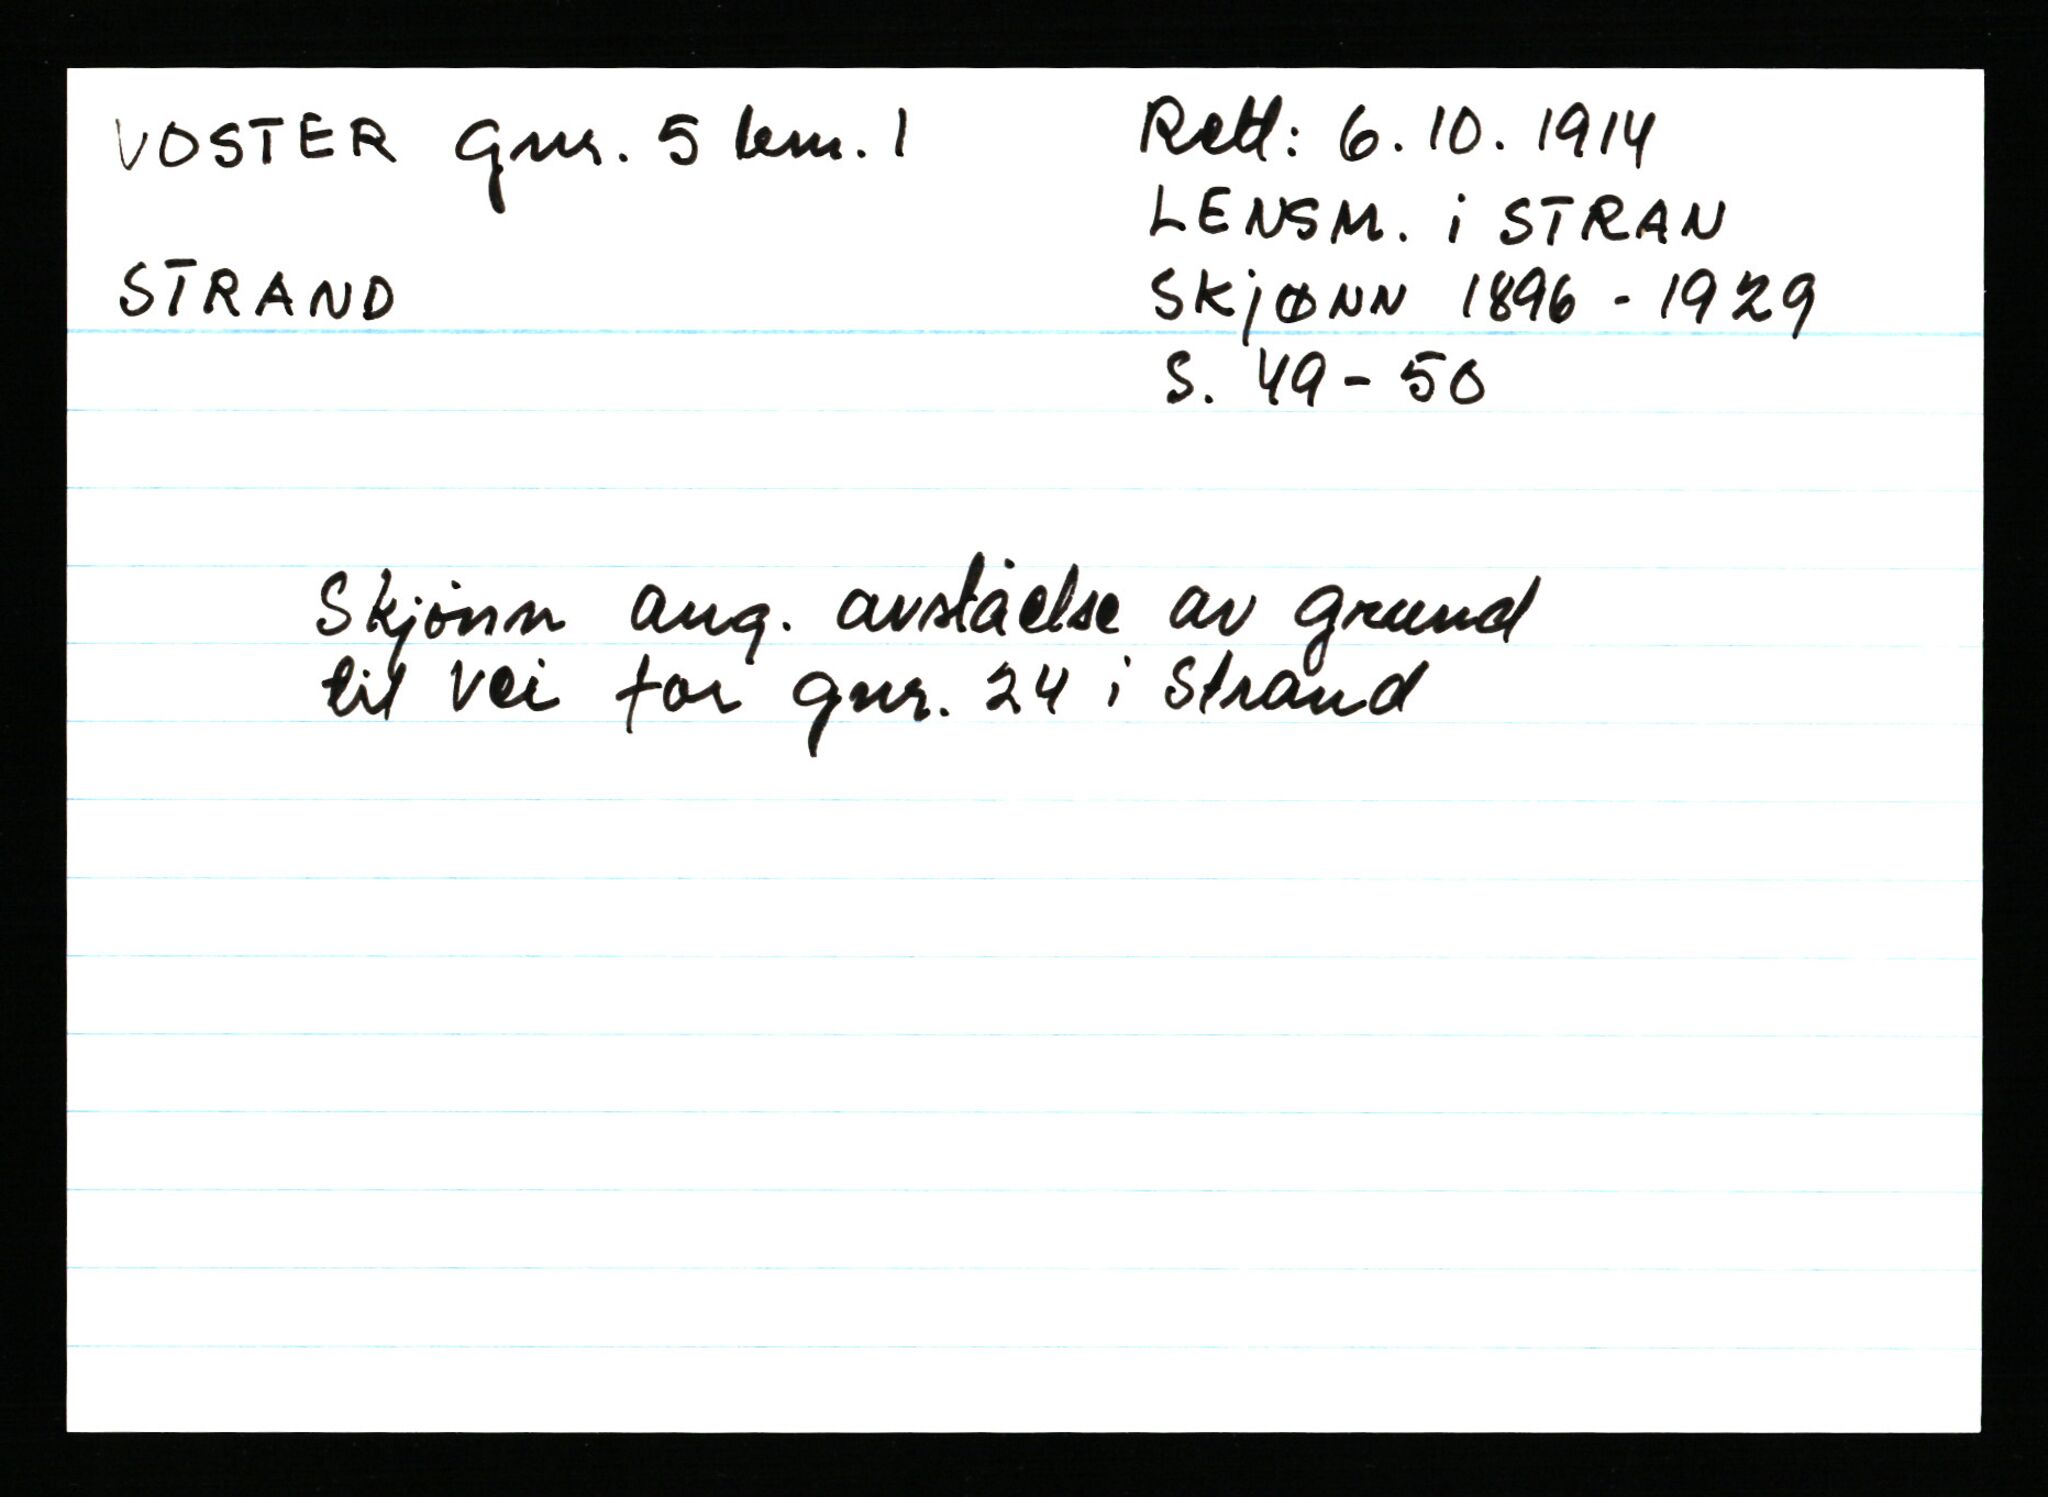 VOSTER gnr. 5 bnr. 1
STRAND
Rettl: 6.10.1914
LENSM. i STRAN
SKJØNN 1896 - 1929
S. 49 - 50
Skjønn ang. avståelse av grund
til vei for gnr. 24 i Strand